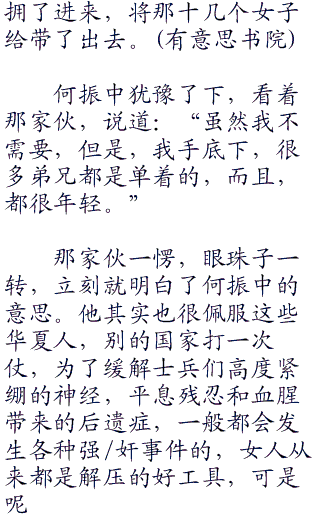 拥了进来，将那十几个女子
给带了出去。(有意思书院)
何振中犹豫了下，看着
那家伙，说道：“虽然我不
需要，但是，我手底下，很
多弟兄都是单着的，而且，
都很年轻。”
那家伙一愣，眼珠子一
转，立刻就明白了何振中的
意思。他其实也很佩服这些
华夏人，别的国家打一次
仗，为了缓解士兵们高度紧
绷的神经，平息残忍和血腥
带来的后遗症，一般都会发
生各种强/奸事件的，女人从
来都是解压的好工具，可是
呢